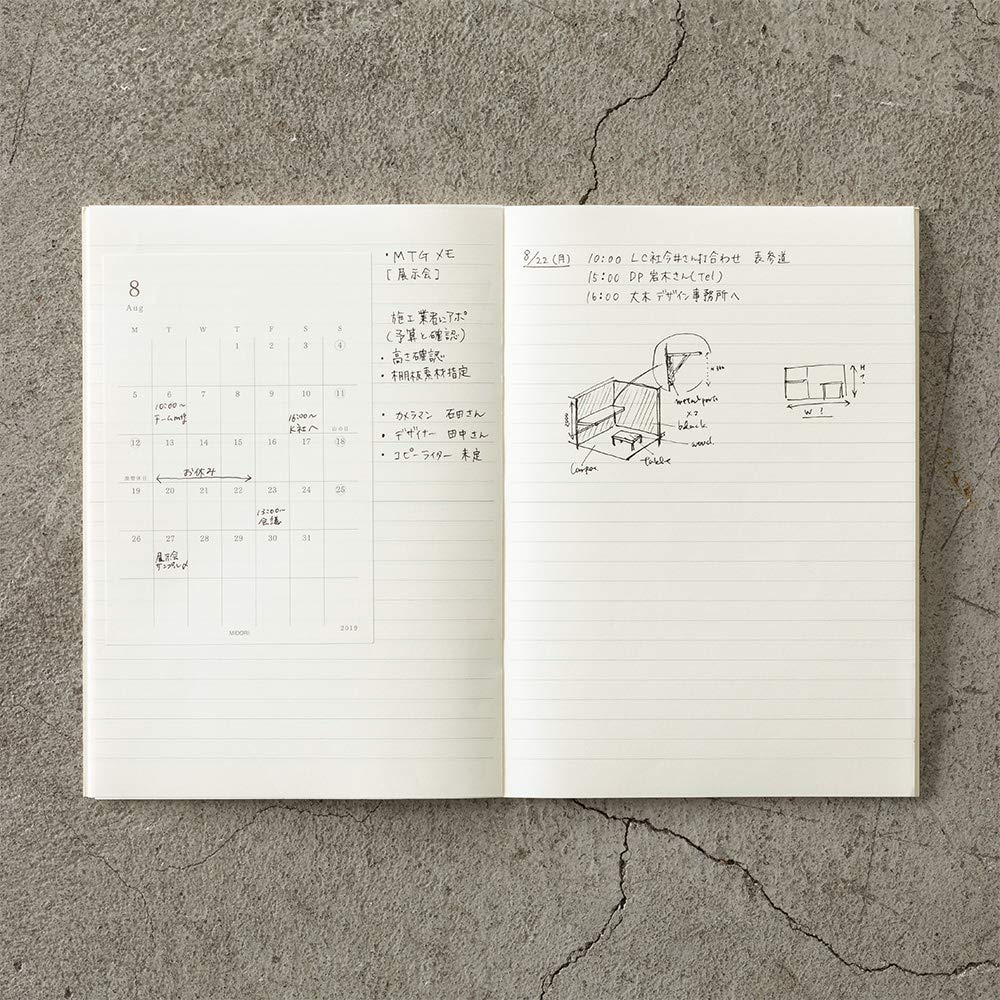 8
Aug
M T W T F S S
1 2 3 4
5 6 7 8 9 10 11
10:00〜 16:00〜
チーム K社へ 山の日
12 13 14 15 16 17 18
振替休日 お休み
19 20 21 22 23 24 25
13:00〜
会議
26 27 28 29 30 31
展示会
サンプル〆
MIDORI 2019
・MTG メモ
[展示会]
施工業者にアポ
(予算と確認)
・高さ確認
・棚板素材指定
・カメラマン 石田さん
・デザイナー 田中さん
・コピーライター 未定
8/22(月) 10:00 LC社今井さん打合わせ 表参道
15:00 DP 岩木さん(Tel)
16:00 大木デザイン事務所へ
metal parts
x2
black
wood
table
H
W ?